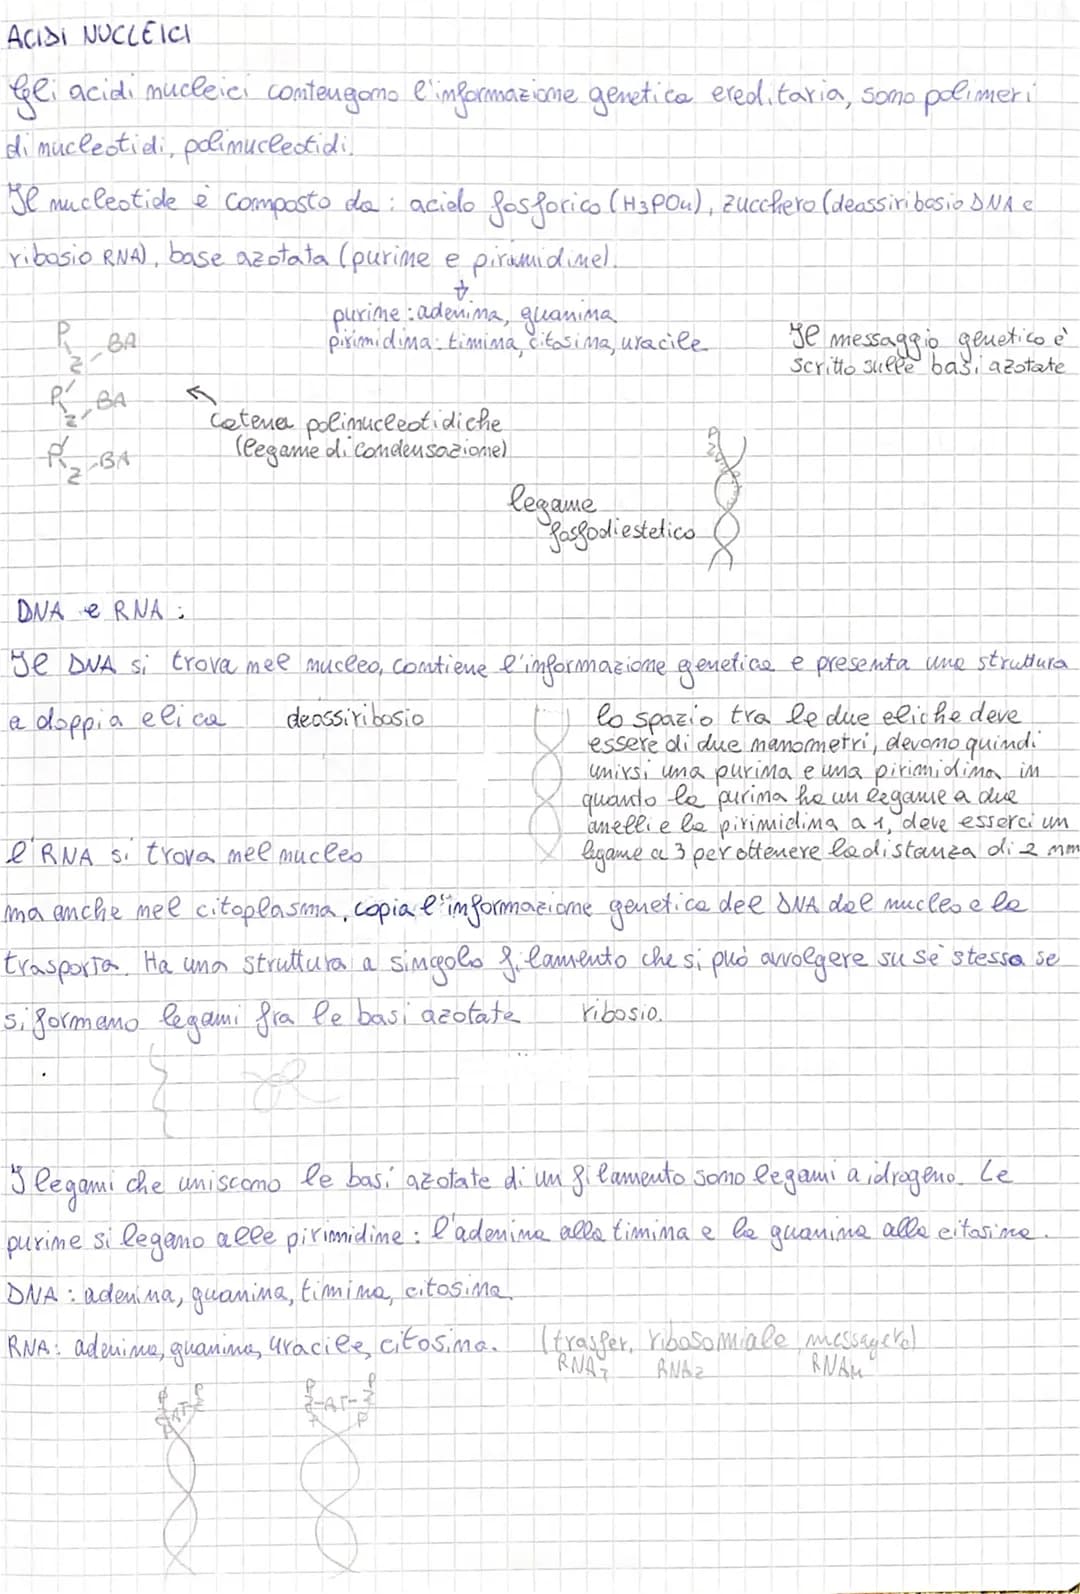 ACIDI NUCLEICI
Gli acidi nucleici contengono l'informazione genetica ereditaria, sono polimeri
di nucleotidi, polinucleotidi.
Il nucleotide è composto da: acido fosforico (H3PO4), zucchero (deassiribosio DNA e
ribosio RNA), base azotata (purine e piramidine).
purine: adenina, guanina
pirimidina: timina, citosina, uracile
Il messaggio genetico è
scritto sulle basi azotate
P
Z - BA
P
Z - BA
P
Z - BA
catena polinucleotidiche
(legame di condensazione)
P
Z
legame
fosfodiestetico
DNA e RNA:
Il DNA si trova nel nucleo, contiene l'informazione genetica e presenta una struttura
a doppia elica deossiribosio
lo spazio tra le due eliche deve
essere di due nanometri, devono quindi
unirsi una purina e una pirimidina in
quanto la purina ha un legame a due
anelli e la pirimidina a 1, deve esserci un
legame a 3 per ottenere la distanza di 2 nm
l'RNA si trova nel nucleo
ma anche nel citoplasma, copia l'informazione genetica del DNA dal nucleo e la
trasporta. Ha una struttura a singolo filamento che si può avvolgere su se stessa se
si formano legami fra le basi azotate ribosio.
I legami che uniscono le basi azotate di un filamento sono legami a idrogeno. Le
purine si legano alle pirimidine: l'adenina alla timina e la guanina alla citosina.
DNA: adenina, guanina, timina, citosina.
RNA: adenina, guanina, uracile, citosina. (trasfer, ribosomiale, messagero)
RNAT RNAZ RNAM
P P
AT
P
P P
Z-AT-Z
P